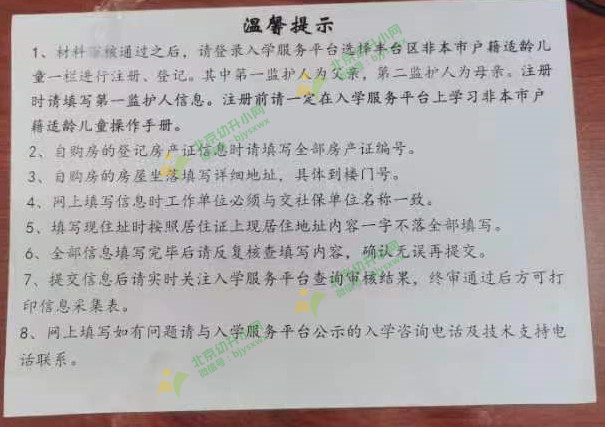 温馨提示
1、材料审核通过之后，请登录入学服务平台选择丰台区非本市户籍适龄儿
童一栏进行注册、登记。其中第一监护人为父亲，第二监护人为母亲。注册
时请填写第一监护人信息。注册前请一定在入学服务平台上学习非本市户
籍适龄儿童操作手册。
2、自购房的登记房产证信息时请填写全部房产证编号。
3、自购房的房屋坐落填写详细地址，具体到楼门号。
4、网上填写信息时工作单位必须与交社保单位名称一致。
5、填写现住址时按照居住证上现居住地址内容一字不落全部填写。
6、全部信息填写完毕后请反复核查填写内容，确认无误再提交。
7、提交信息后请实时关注入学服务平台查询审核结果，终审通过后方可打
印信息采集表。
8、网上填写如有问题请与入学服务平台公示的入学咨询电话及技术支持电
话联系。
北京幼升小网
微信号：bjysxwx
北京幼升小网
微信号：bjysxwx
北京幼升小网
微信号：bjysxwx
北京幼升小网
微信号：bjysxwx
北京幼升小网
微信号：bjysxwx